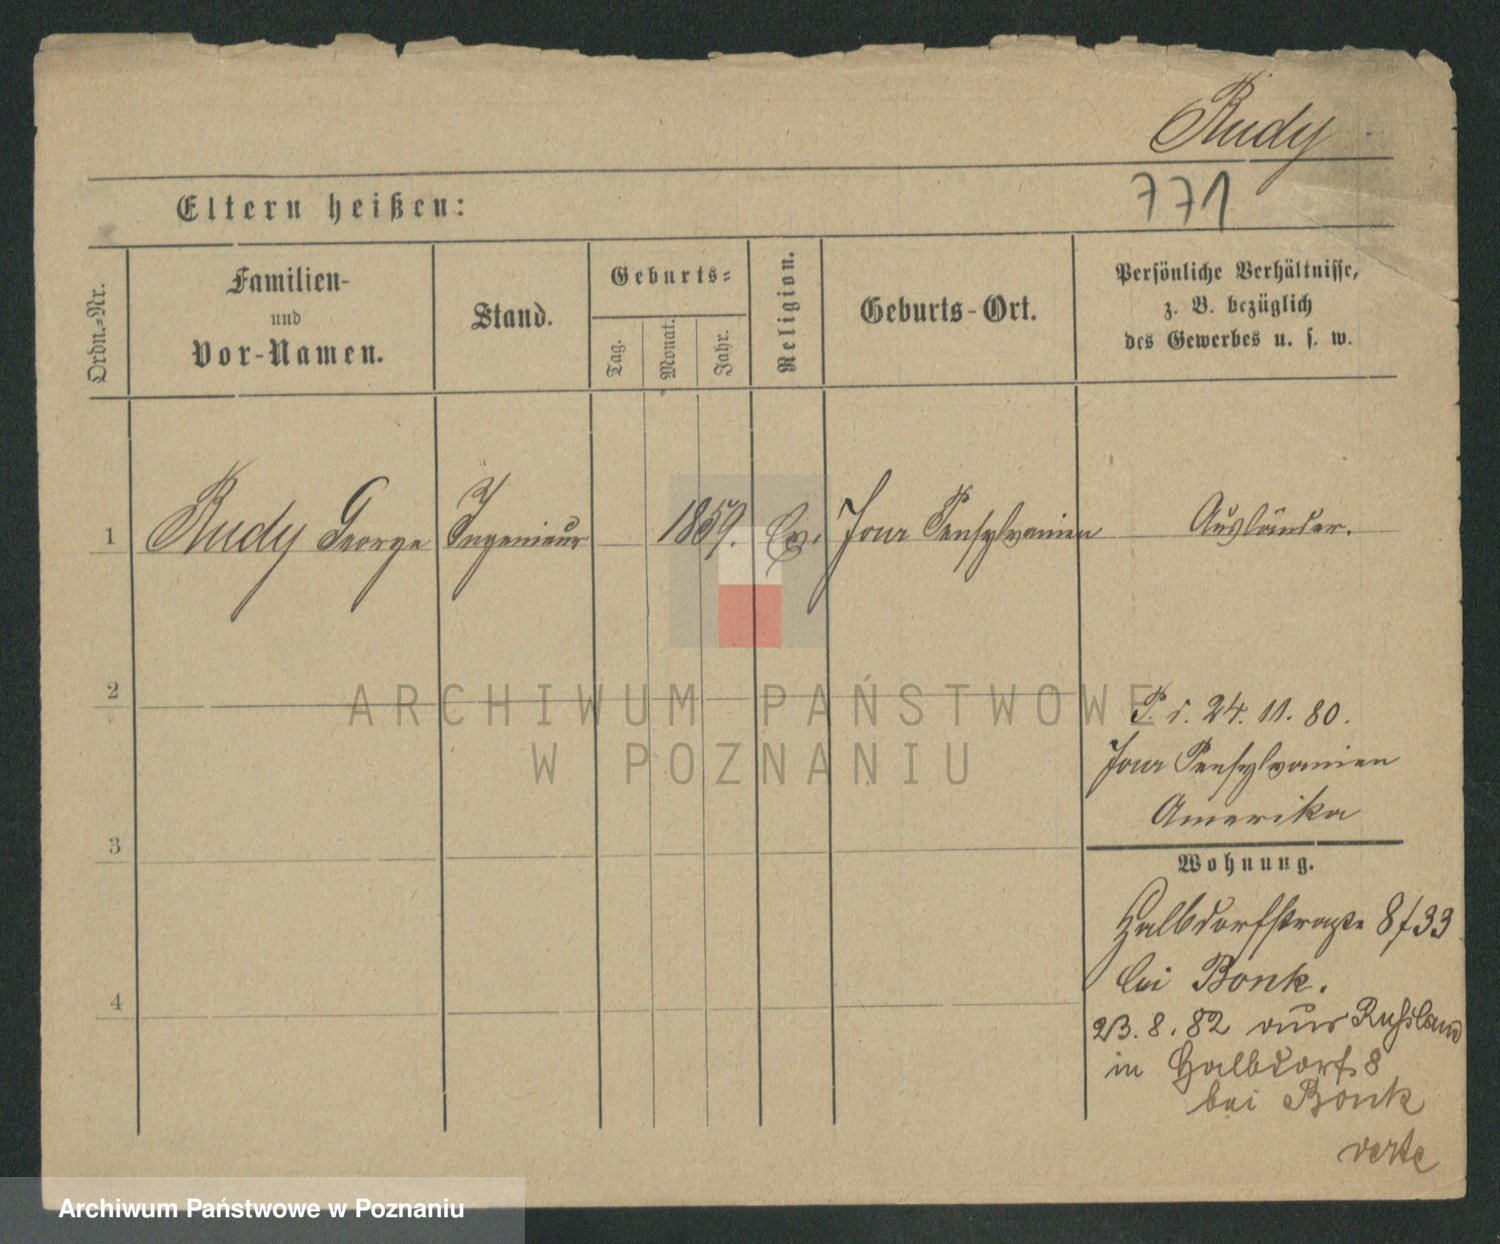 Rudy
771
Eltern heißen:
Ordn.-Nr.
Familien-
und
Vor-Namen.
Stand.
Geburts-
Tag.
Monat.
Jahr.
Religion.
Geburts-Ort.
Persönliche Verhältnisse,
z. B. bezüglich
des Gewerbes u. s. w.
1 Rudy George Ingenieur 1859. Ev. Pensylvanien Ausländer.
2
P. v. 24. 11. 80.
Pensylvanien
Amerika
3
Wohnung.
Halbdorfstraße 8/33
bei Bonk.
4
23. 8. 82 aus Rußland
in Halbdorf 8
bei Bonk
verte
ARCHIWUM PAŃSTWOWE
W POZNANIU
Archiwum Państwowe w Poznaniu